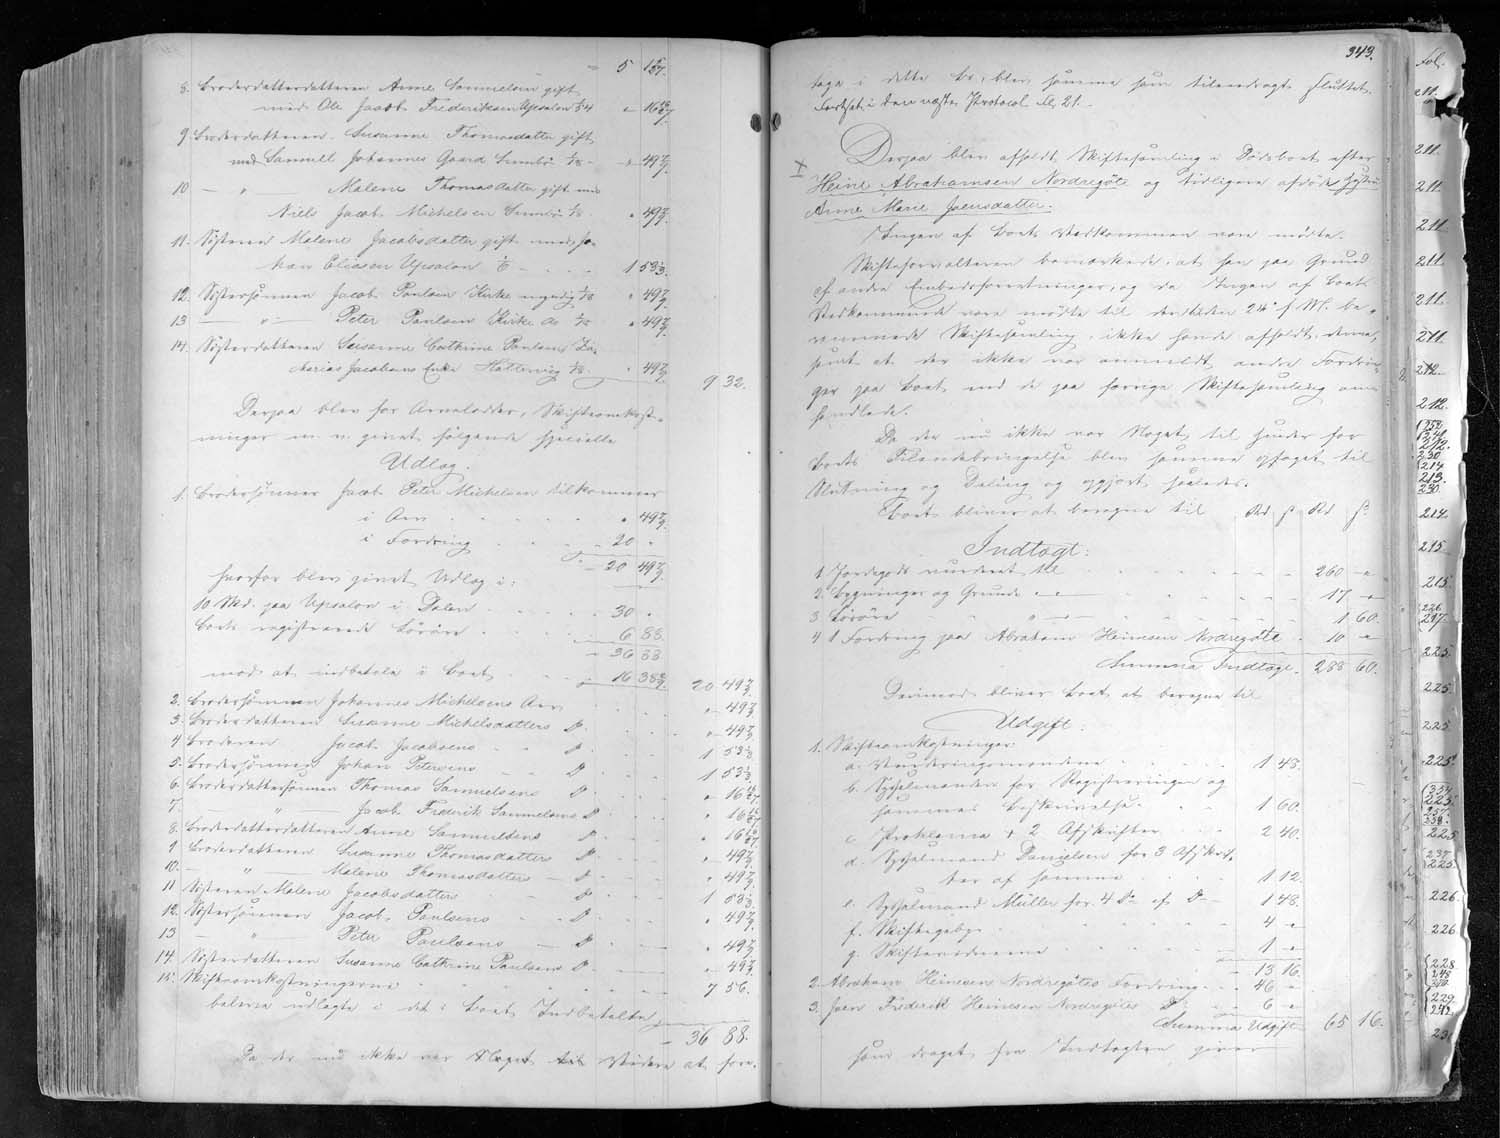 " 5 15/27.
8. Broderdatterdatteren Anne Samuelsen gift
med Ole Jacob Frederiksen Upsalen 1/54 " 16 16/27
9. Broderdatteren Susanne Thomasdatter gift
med Samuell Johannes Gaard Sumbø 1/18 - " 49 7/9.
10 — " — Malene Thomasdatter gift med
Niels Jacob Michelsen Sumbø 1/18 " 49 7/9.
11. Søsteren Malene Jacobsdatter gift med Jo-
han Eliasen Upsalon 1/6 - - - 1 53 1/3.
12. Søstersønnen Jacob Poulsen Kirke myndig 1/18 " 49 7/9
13 — " — Peter Poulsen Kirke do 1/18 " 49 7/9
14. Søsterdatteren Susanne Cathrine Poulsens Za-
charias Jacobsens Enke Hattervig 1/18. " 49 7/9.
9 32.
Derpaa blev for Arvelodder, Skifteomkost-
ninger m. v. givet følgende specielle
Udlog.
1. Brodersønnen Jacob Peter Michelsen tilkommer
i Arv " 49 7/9
i Fordring 20 "
20 49 7/9
hvorfor blev givet Udlæg i:
10 Skd. paa Upsalon i Dalen 30 "
Boets registrerede Løsøre 6 88.
36 88
mod at indbetale i Boet 16 38 2/9 20 49 7/9
2. Brodersønnen Johannes Michelsens Arv " 49 7/9
3. Broderdatteren Susanne Michelsdatters Do " 49 7/9
4 Broderen Jacob Jacobsens Do 1 53 1/3
5. Brodersønnen Johan Petersens Do 1 53 1/3
6. Broderdattersønnen Thomas Samuelsens Do " 16 16/27
7. — " — Jacob Frederik Samuelsens Do " 16 16/27
8. Broderdatterdatteren Anne Samuelsens Do " 16 16/27
9 Broderdatteren Susanne Thomasdatters Do " 49 7/9
10. — " — Malene Thomasdatters Do " 49 7/9
11 Søsteren Malene Jacobsdatters Do 1 53 1/3
12. Søstersønnen Jacob Poulsens Do " 49 7/9
13 — " — Peter Poulsens Do " 49 7/9
14. Søsterdatteren Susanne Cathrine Poulsens Do " 49 7/9
15. Skifteomkostningerne 7 56.
bleve udlagte i det i Boet Indbetalte
36 88.
Da der nu ikke var Noget til Videre at fore-
343.
tage i dette Bo, blev samme som tilendebragt sluttet.
Fortsat i den næste Protocol Fol. 21.
X Derpaa blev afholdt Skiftesamling i Dødsboet efter
Heine Abrahamsen Nordregöte og tidligere afdøde Hustru
Anne Marie Joensdatter.
Ingen af Boets Vedkommende vare mødte.
Skifteforvalteren bemærkede, at han paa Grund
af andre Embedsforretninger, og da Ingen af Boets
Vedkommende vare mødte til den siden 24de f. M. be-
rammede Skiftesamling, ikke havde afholdt denne,
samt at der ikke var anmeldt andre Fordrin-
ger paa Boet end de paa forrige Skiftesamling om-
handlede.
Da der nu ikke var Noget til Hinder for
Boets Tilendebringelse blev samme optaget til
Slutning og Deling og opgjort saaledes.
Boet bliver at beregne til Rd ß Rd ß
Indtægt:
1 Jordegods vurderet til 260 "
2. Bygninger og Grunde " 17 "
3 Løsøre " 1 60.
4 1 Fordring paa Abraham Heinesen Nordregöte 10 "
Summa Indtægt 288 60.
Derimod bliver Boet at beregne til
Udgift:
1. Skifteomkostninger:
a. Vurderingsmændene 1 48.
b. Sysselmanden for Registreringen og
sammes Beskrivelse 1 60.
c. Proklama + 2 Afskrifter 2 40.
d. Sysselmand Danielsen for 3 Afskrif-
ter af samme 1 12.
e. Sysselmand Müller for 4 Do af Do 1 48.
f. Skiftegebyr 4 "
g. Skiftevidnerne 1 "
13 16.
2 Abraham Heinesen Nordregötes Fordring 46 "
3. Joen Frederik Heinesen Nordregötes Do 6 "
Summa Udgift 65 16.
som draget fra Indtægten giver
Fol.
211.
211.
211.
211.
211.
211.
211.
212.
212.
212.
230
214
213.
230.
214
215
215.
226
217.
225.
225.
225
225
225.
225
237
225.
226.
226.
228
229.
242.